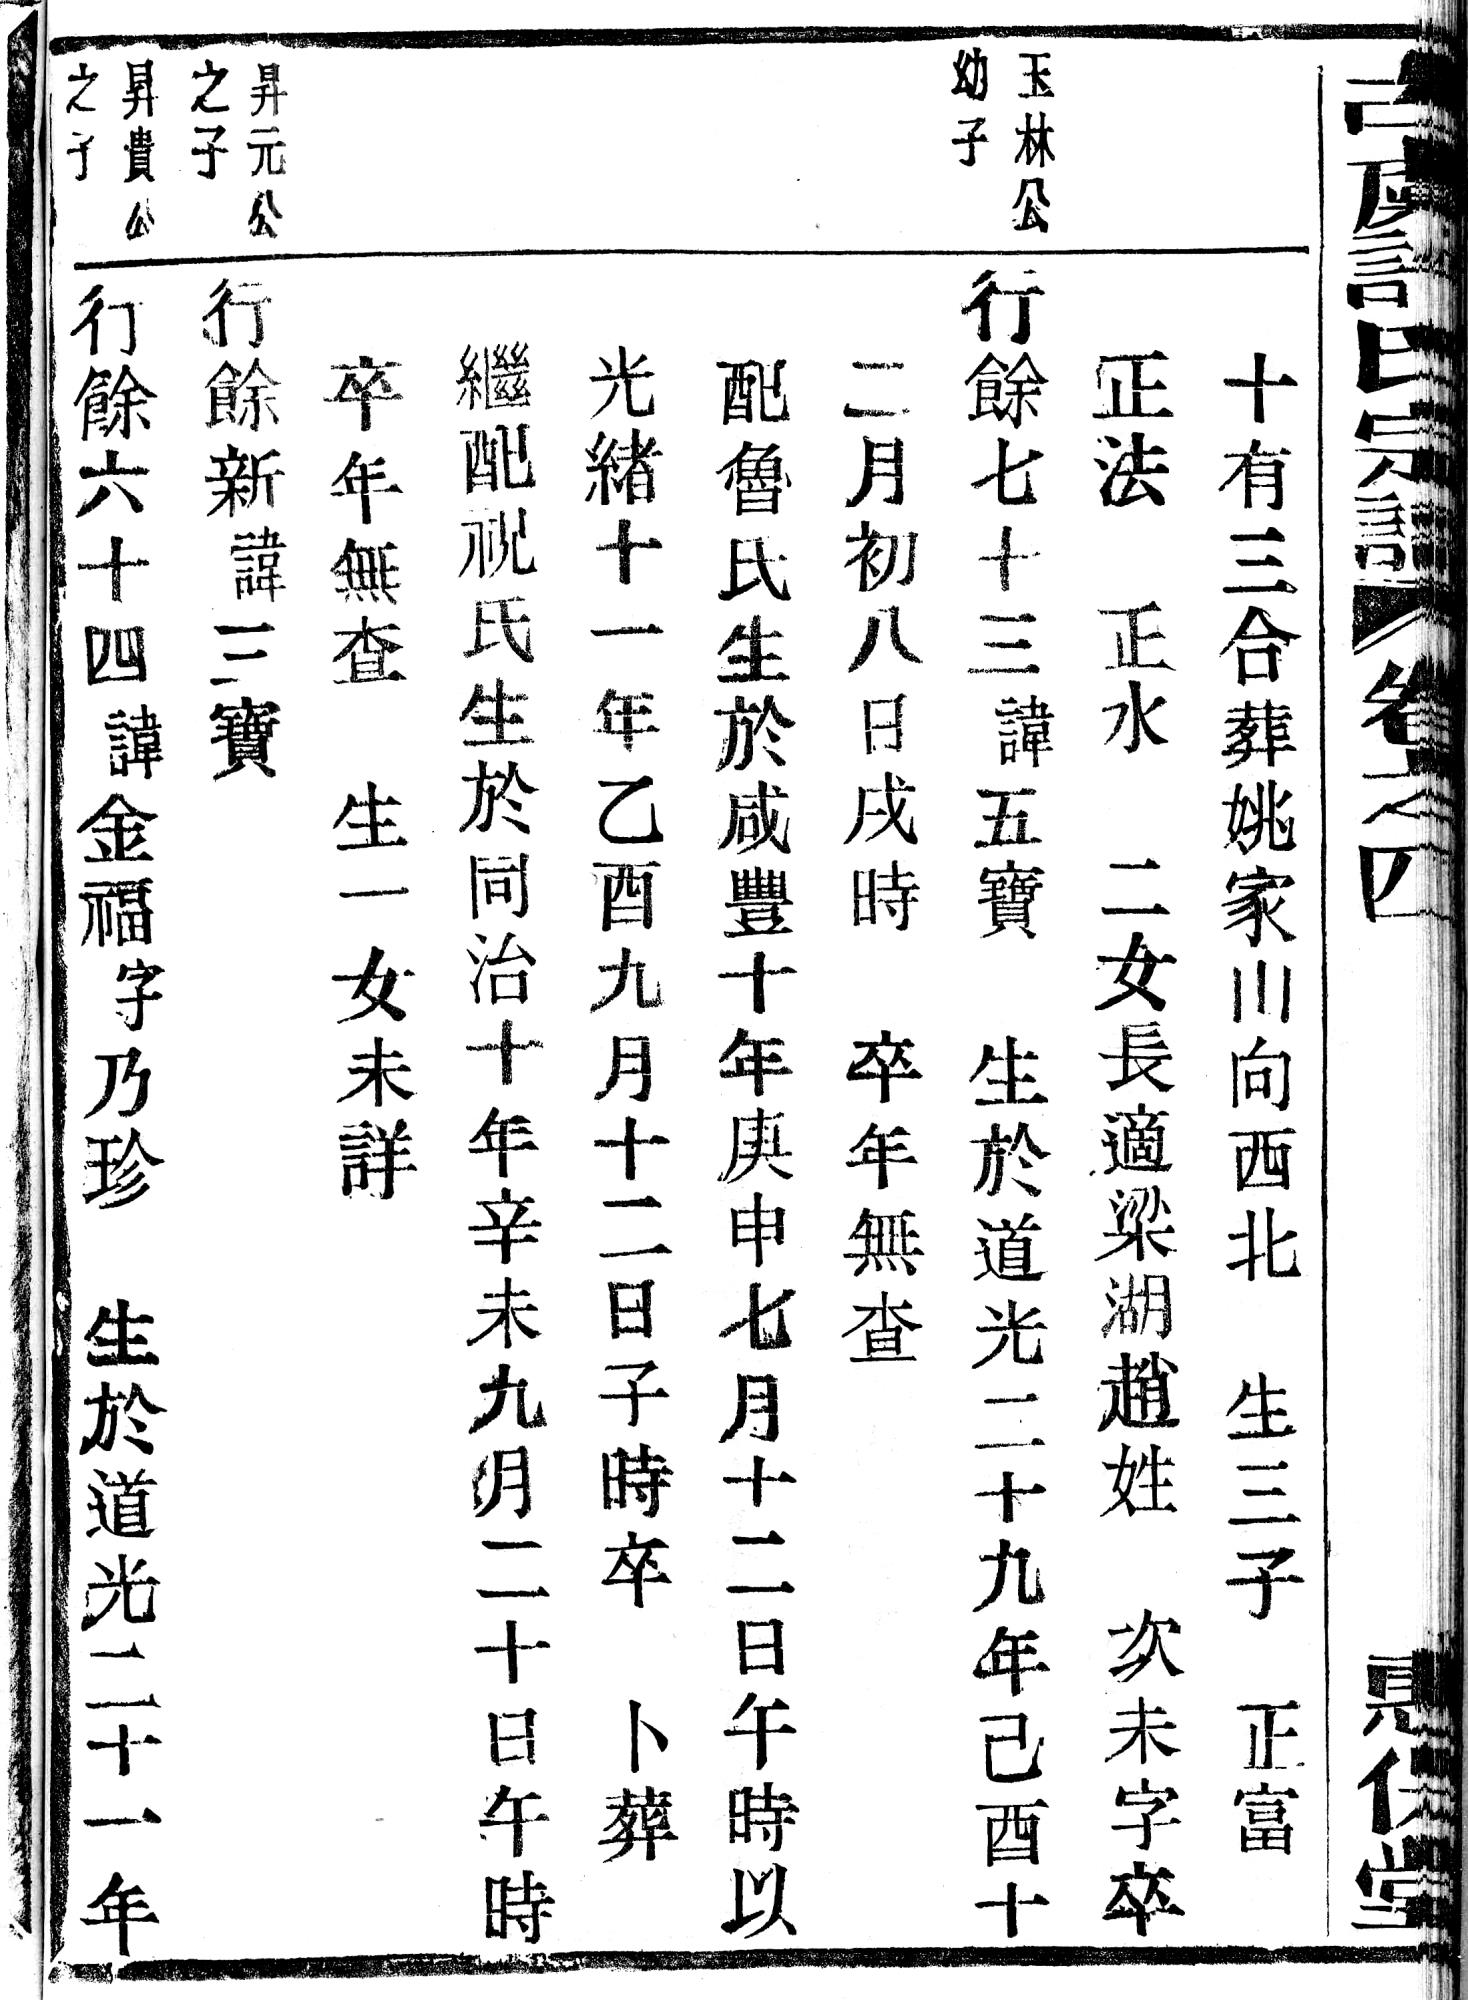 古虞許氏宗譜 卷之四
十有三合葬姚家山向西北 生三子 正富
正法 正水 二女長適梁湖趙姓 次未字卒
玉林公
幼子
行餘七十三諱五寶 生於道光二十九年己酉十
二月初八日戌時 卒年無查
配魯氏生於咸豐十年庚申七月十二日午時以
光緒十一年乙酉九月十二日子時卒 卜葬
繼配祝氏生於同治十年辛未九月二十日午時
卒年無查 生一女未詳
昇元公
之子
行餘新諱三寶
昇貴公
之子
行餘六十四諱金福字乃珍 生於道光二十一年